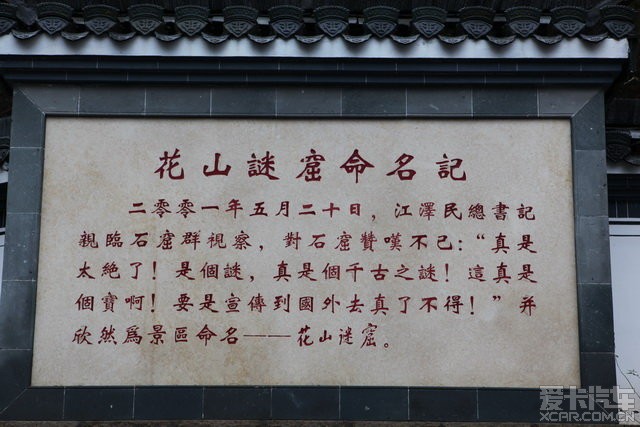 花山謎窟命名記
二零零一年五月二十日，江澤民總書記
親臨石窟群視察，對石窟贊嘆不已：“真是
太絶了！是個謎，真是個千古之謎！這真是
個寶啊！要是宣傳到國外去真了不得！”并
欣然爲景區命名——花山迷窟。
爱卡汽车
XCAR.COM.CN